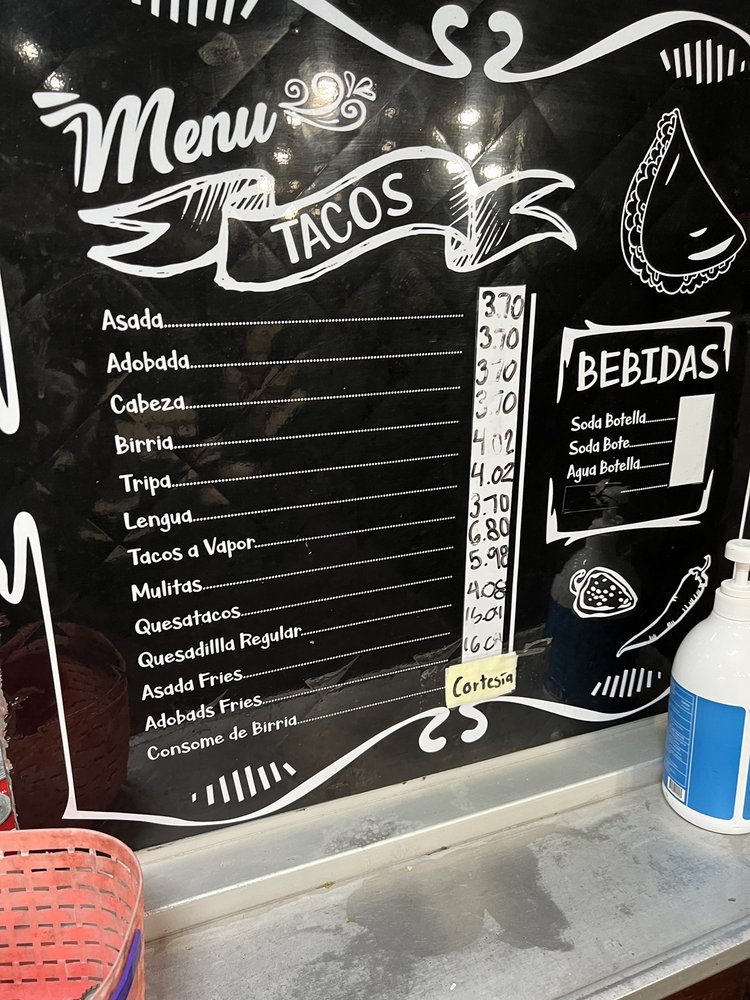 Menu
TACOS
Asada........ 3.70
Adobada........ 3.70
Cabeza........ 3.70
Birria........ 3.70
Tripa........ 4.02
Lengua........ 4.02
Tacos a Vapor........ 3.70
Mulitas........ 6.80
Quesatacos........ 5.98
Quesadillla Regular........ 4.08
Asada Fries........
Adobads Fries........
Consome de Birria........ Cortesia
BEBIDAS
Soda Botella........
Soda Bote........
Agua Botella........